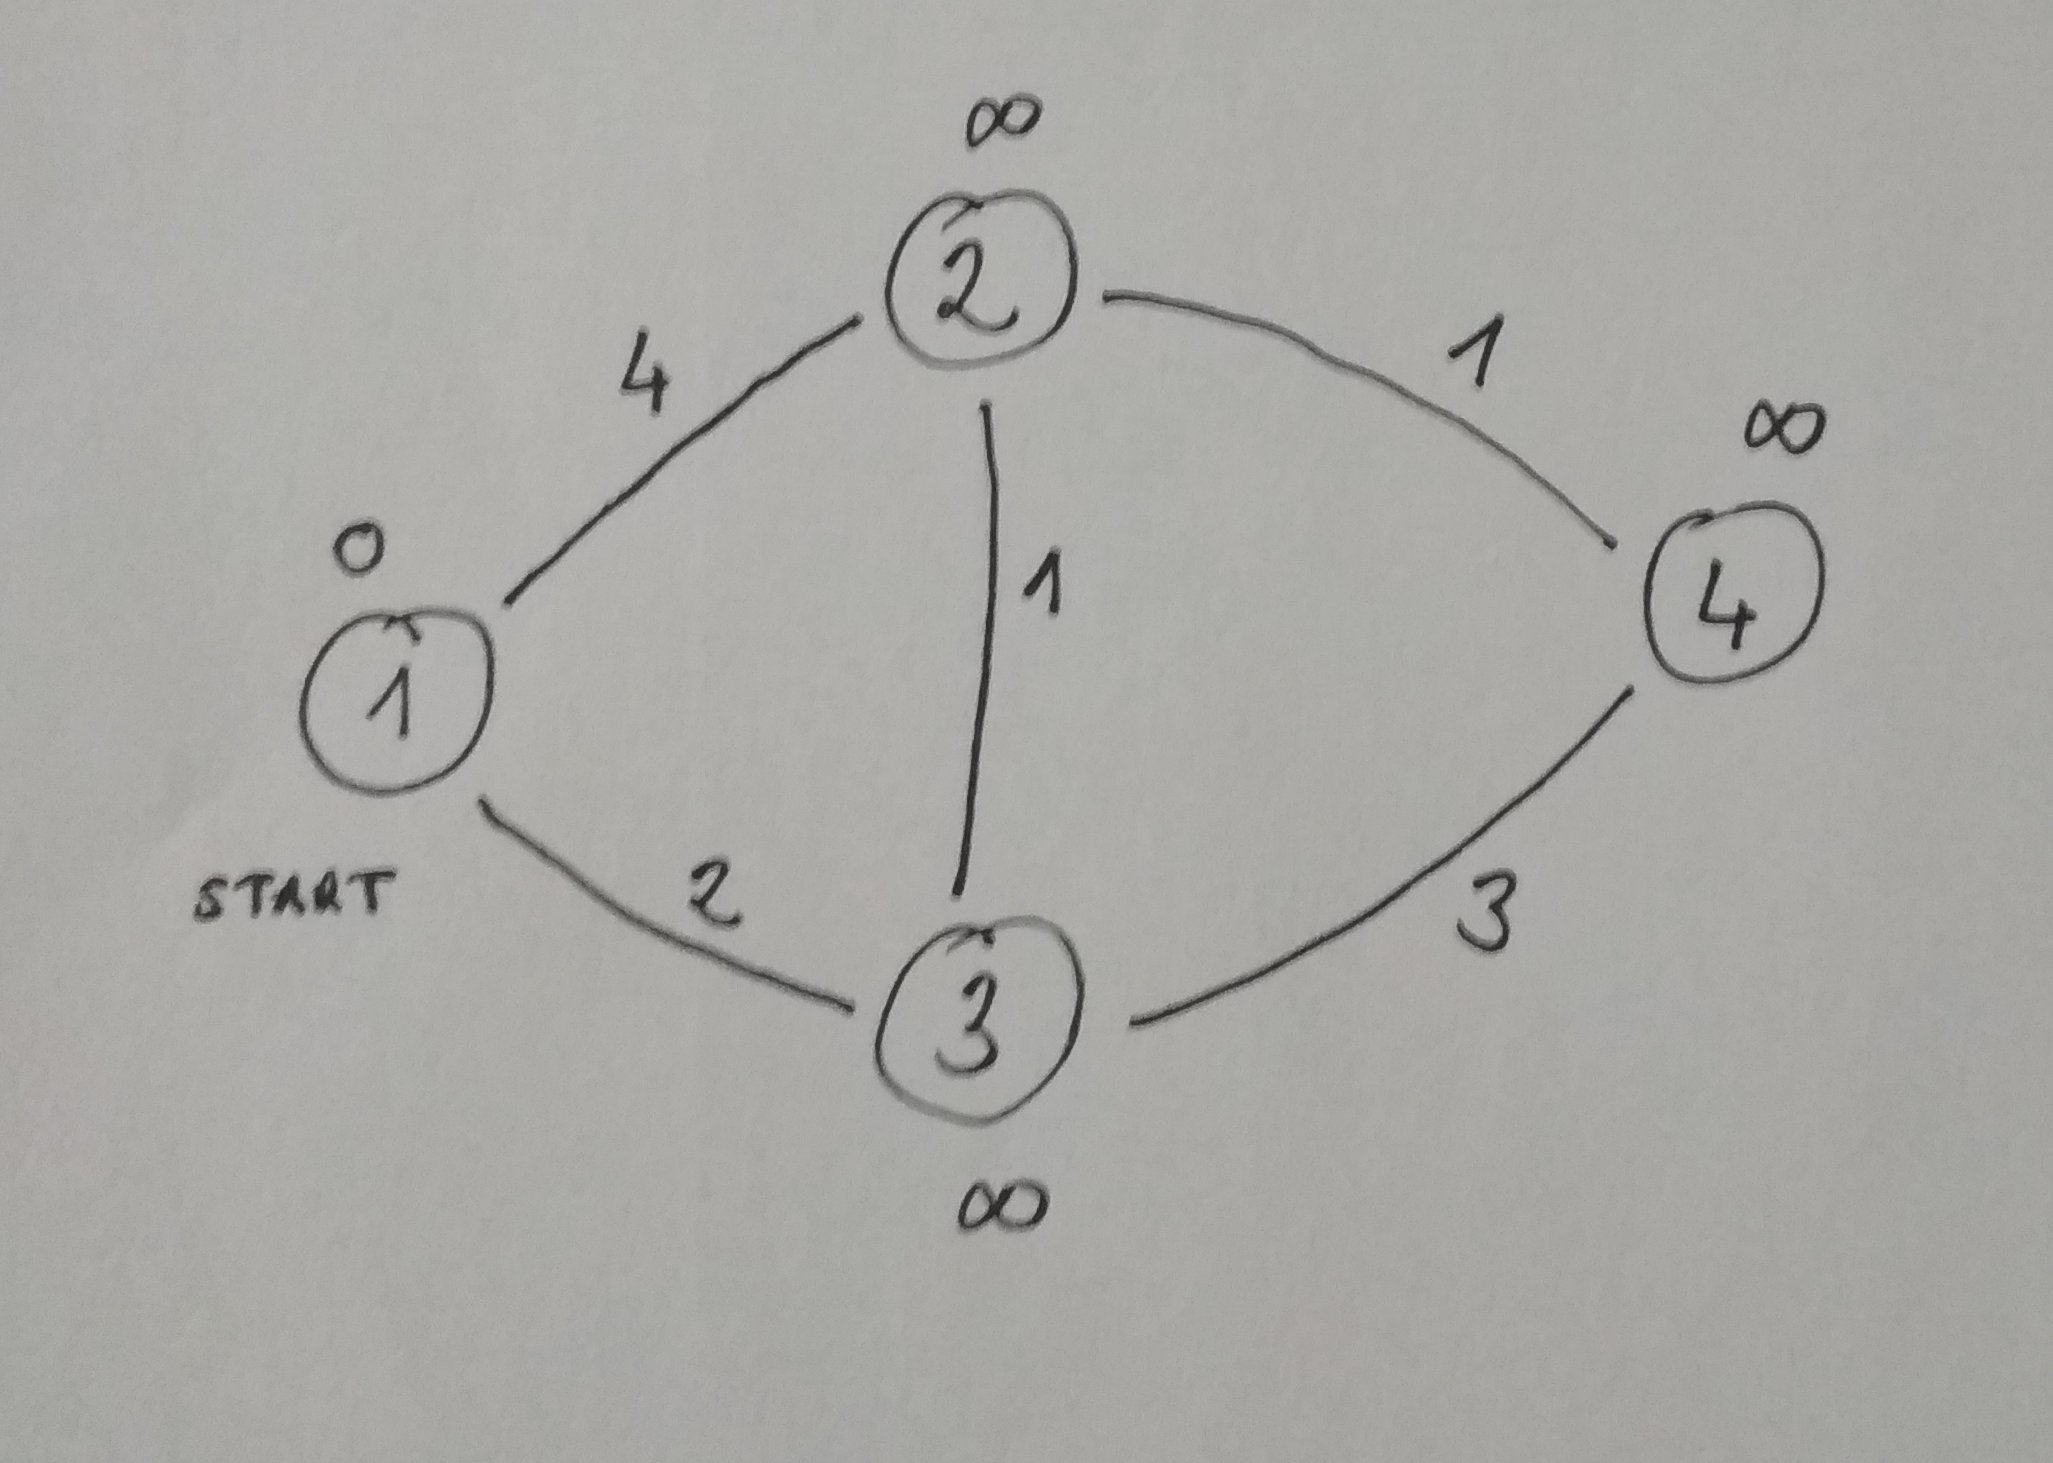 ∞
2
4
1
∞
0
1
4
1
START
2
3
3
∞